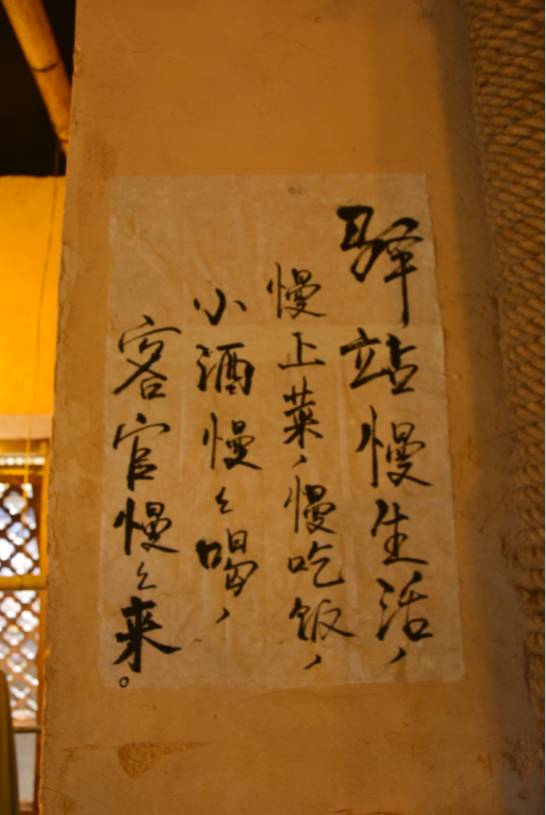 驿站慢生活，
慢上菜，慢吃饭，
小酒慢々喝，
客官慢々来。